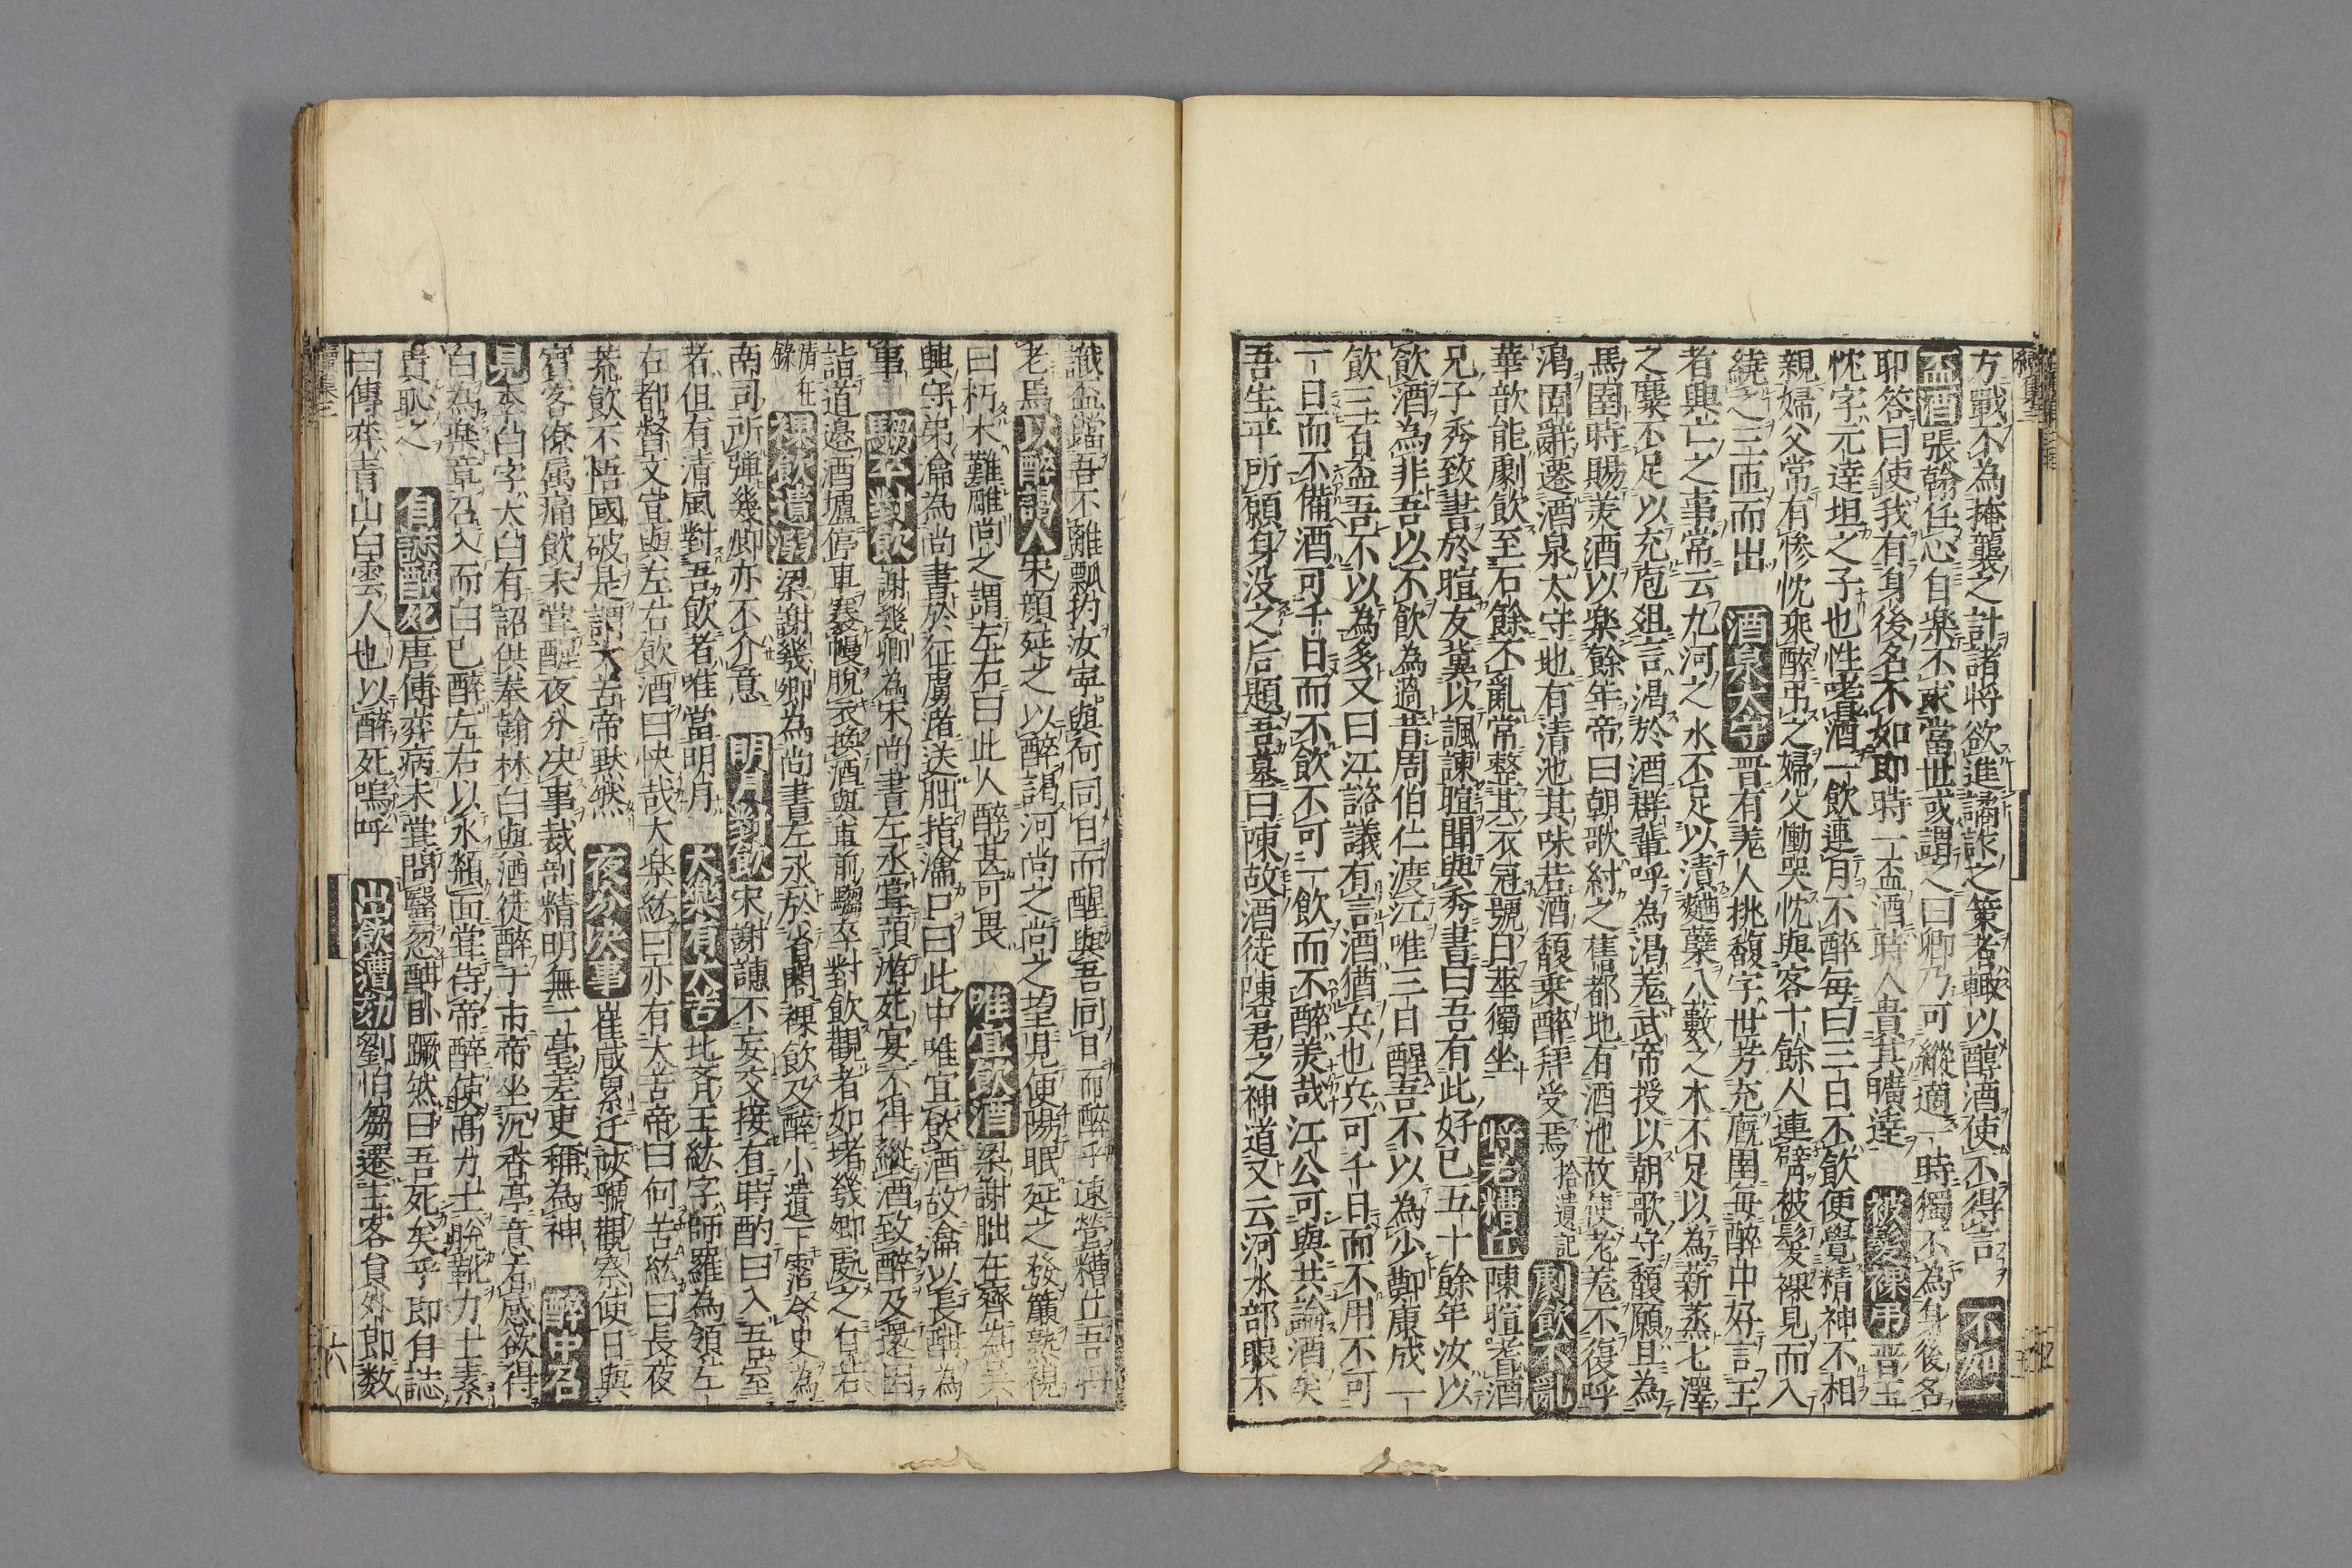 方戰不為掩襲之計諸将欲進譎詐之策者輙以醇酒使不得言 不如一
盃酒 張翰任心自樂不求當世或謂之曰卿乃可縱適一時獨不為身後名
耶答曰使我有身後名不如即時一盃酒時人貴其曠達 被髮裸弔 晋王
忱字元達坦之子也性嗜酒一飲連月不醉每曰三日不飲便覺精神不相
親婦父常有惨忱乘醉弔之婦父慟哭忱與客十餘人連臂被髮裸見而入
繞之三匝而出 酒泉太守 晋有羌人姚馥字世芳充廐圉每醉中好言王
者興亡之事常云九河之水不足以漬麹蘗八藪之木不足以為薪蒸七澤
之麋不足以充庖爼言渇於酒群輩呼為渇羌武帝授以朝歌守馥願且為
馬圉時賜羙酒以樂餘年帝曰朝歌紂之舊都地有酒池故使老羌不復呼
渇固辭遷酒泉太守地有清池其味若酒馥乗醉拜受焉 拾遺記 劇飲不亂
華歆能劇飲至石餘不亂常整其衣冠號曰華獨坐 将老糟丘 陳暄嗜酒
兄子秀致書於暄友冀以諷諫暄聞與秀書曰吾有此好已五十餘年汝以
飲酒為非吾以不飲為過昔周伯仁渡江唯三日醒吾不以為少鄭康成一
飲三百盃吾不以為多又曰江諮議有言酒猶兵也兵可千日而不用不可
一日而不備酒可千日而不飲不可一飲而不醉羙哉江公可與共論酒矣
吾生平所願身没之后題吾墓曰陳故酒徒陳君之神道又云河水部眼不
識盃鐺吾不離瓢杓汝寜與何同日而醒與吾同日而醉乎速營糟丘吾将
老焉 以醉謁人 宋顔延之以醉謁河尚之尚之望見便陽眠延之發簾熟視
曰朽木難雕尚之謂左右曰此人醉甚可畏 唯宜飲酒 梁謝朏在齊為吴
興守弟瀹為尚書於征虜渚送朏指瀹口曰此中唯宜飲酒故瀹以長酣為
事 騶卒對飲 謝幾卿為宋尚書左丞嘗預游苑宴不得縱酒致醉及還因
詣道邉酒壚停車褰幔脫衣換酒與車前騶卒對飲觀者如堵幾卿處之自若
情在録 裸飲遺溺 梁謝幾卿為尚書左丞於省閣裸飲及醉小遺下霑令史為
南司所彈幾卿亦不介意 明月對飲 宋謝譓不妄交接有時酌曰入吾室
者但有清風對吾飲者唯當明月 大樂有大苦 北齊王紘字師羅為領左
右都督文宣與左右飲酒曰快哉大樂紘曰亦有大苦帝曰何苦紘曰長夜
荒飲不悟國破是謂大苦帝默然 夜分决事 崔咸累迁陜虢觀察使日與
賓客僚属痛飲未嘗醒夜分决事裁剖精明無一毫差吏稱為神 醉中召
見 李白字太白有詔供奉翰林白與酒徒醉于市帝坐沉香亭意有感欲得
白為樂章召入而白已醉左右以水頮面嘗侍帝醉使髙力士脫靴力士素
貴恥之 自誌醉死 唐傅奕病未嘗問醫忽酣卧蹶然曰吾死矣乎即自誌
曰傅奕青山白雲人也以醉死嗚呼 出飲遭劾 劉伯芻遷主客貟外郎数
六